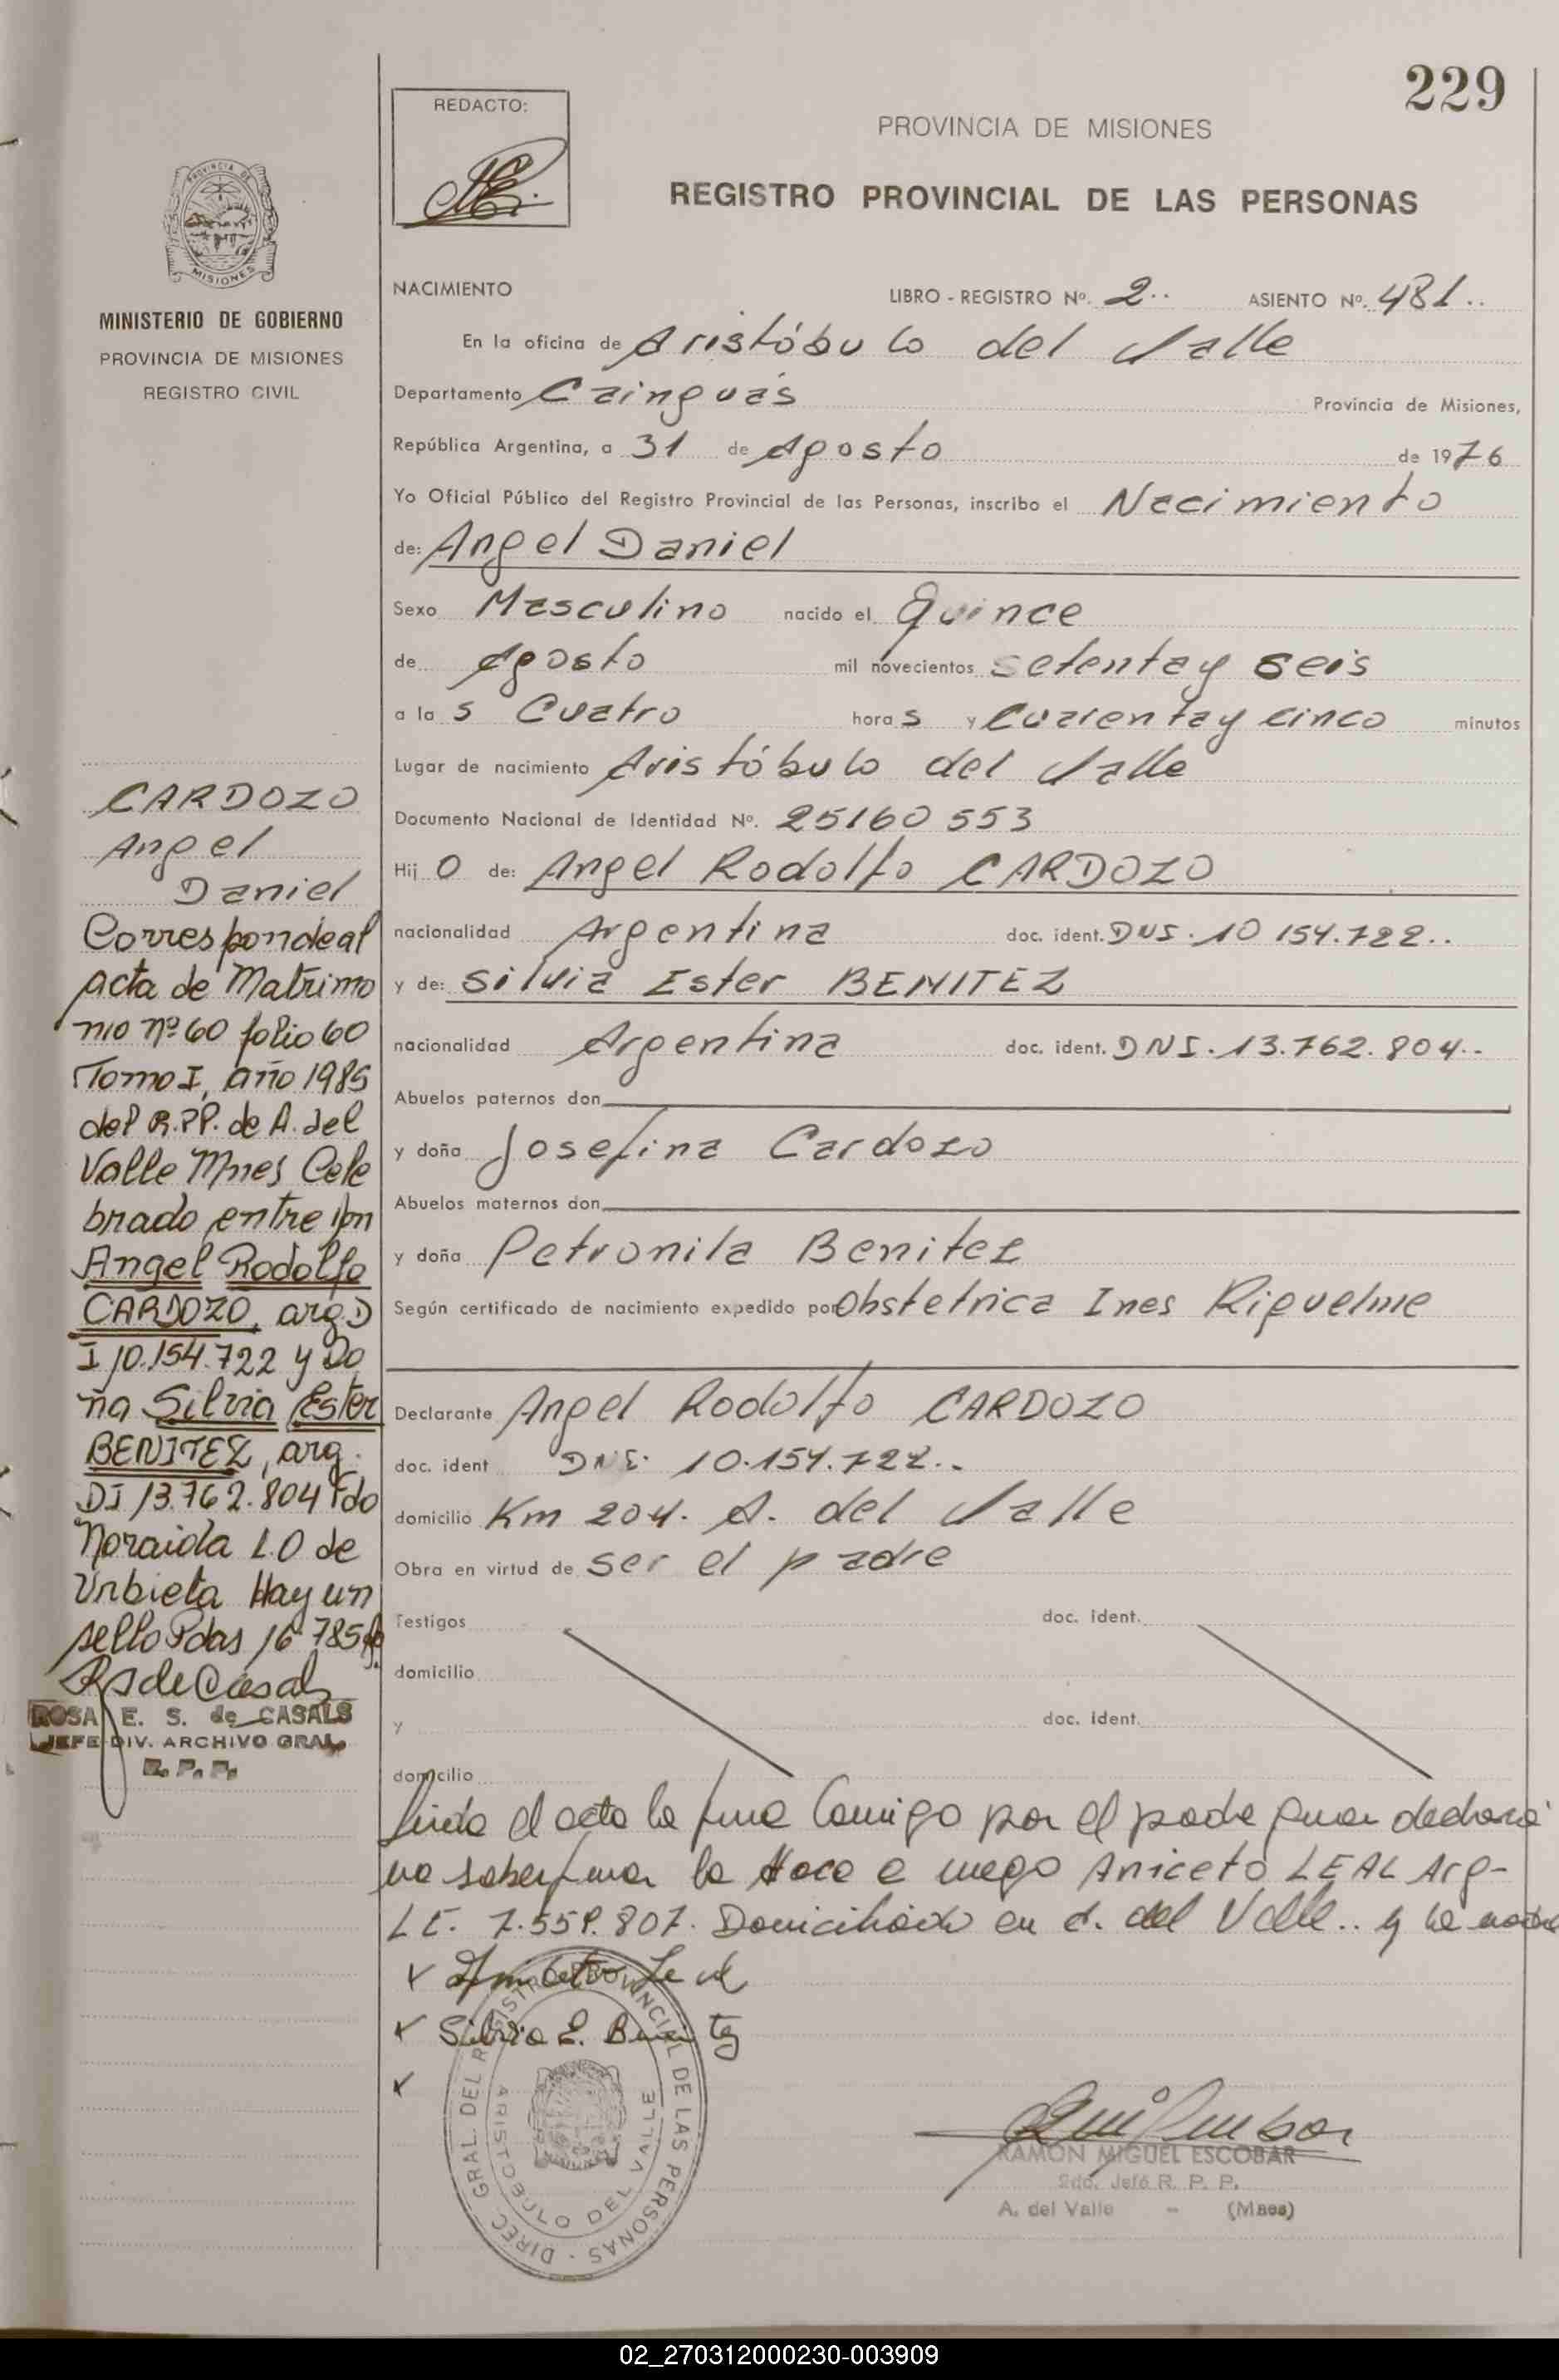 229
REDACTO:
PROVINCIA DE MISIONES
REGISTRO PROVINCIAL DE LAS PERSONAS
PROVINCIA DE
MISIONES
MINISTERIO DE GOBIERNO
PROVINCIA DE MISIONES
REGISTRO CIVIL
NACIMIENTO LIBRO - REGISTRO Nº. 2.. ASIENTO Nº. 481..
En la oficina de Aristóbulo del Valle
Departamento Cainguás Provincia de Misiones,
República Argentina, a 31 de Agosto de 1976
Yo Oficial Público del Registro Provincial de las Personas, inscribo el Nacimiento
de: Angel Daniel
Sexo Masculino nacido el Quince
de Agosto mil novecientos setenta y seis
a la s Cuatro hora s y Cuarenta y cinco minutos
Lugar de nacimiento Aristóbulo del Valle
Documento Nacional de Identidad Nº. 25160553
Hij o de: Angel Rodolfo CARDOZO
nacionalidad Argentina doc. ident. DNI. 10 154.722..
y de: Silvia Ester BENITEZ
nacionalidad Argentina doc. ident. DNI. 13.762.804..
Abuelos paternos don
y doña Josefina Cardozo
Abuelos maternos don
y doña Petronila Benitez
Según certificado de nacimiento expedido por Obstetrica Ines Riquelme
Declarante Angel Rodolfo CARDOZO
doc. ident DNI. 10.154.722..
domicilio Km 204. A. del Valle
Obra en virtud de ser el padre
Testigos doc. ident.
domicilio
y doc. ident.
domicilio
Leida el acta la firma Conmigo por el padre quien declara
no saber firmar lo Hace a ruego Aniceto LEAL Arg-
LE. 7.559.807. Domiciliado en A. del Valle.. y la madre
Leal
Silvia E. Benitez
DIREC. GRAL. DEL REGISTRO PROVINCIAL DE LAS PERSONAS
ARISTOBULO DEL VALLE
RAMON MIGUEL ESCOBAR
Jefe R. P. P.
A. del Valle - (Mnes)
CARDOZO
Angel
Daniel
Corresponde al
acta de Matrimo
nio nº 60 folio 60
Tomo I, año 1985
del R.P.P. de A. del
Valle Mnes Cele
brado entre Don
Angel Rodolfo
CARDOZO, arg. D
I 10.154.722 y Do
ña Silvia Ester
BENITEZ, arg.
DI 13.762.804 Fdo
Noraida L.O de
Urbieta Hay un
sello Pdas 16-7-85
ROSA E. S. de CASALS
JEFE DIV. ARCHIVO GRAL.
R. P. P.
02_270312000230-003909